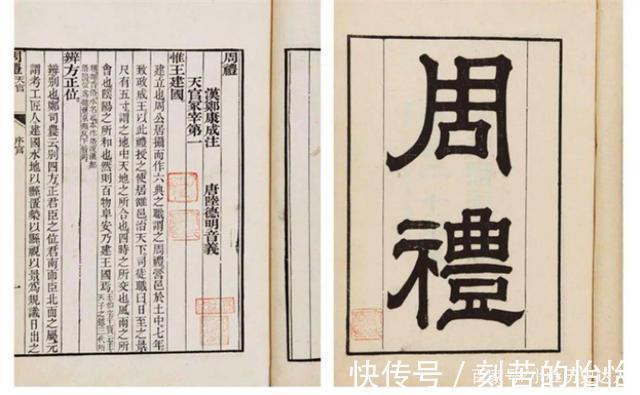 周禮
漢鄭康成注 唐陸德明音義
天官冢宰第一
惟王建國
建立也周公居攝而作六典之職謂之周禮營邑於土中七年
致政成王以此禮授之使居雒邑治天下司徒職曰日至之景
尺有五寸謂之地中天地之所合也四時之所交也風雨之所
會也陰陽之所和也然則百物阜安乃建王國焉
辨方正位
辨别也鄭司農云别四方正君臣之位君南面臣北面之屬元
謂考工匠人建國水地以縣置槷以縣視以景爲規識日出之
周禮 天官 序官 一
周禮
快传号/刻苦的怡怡